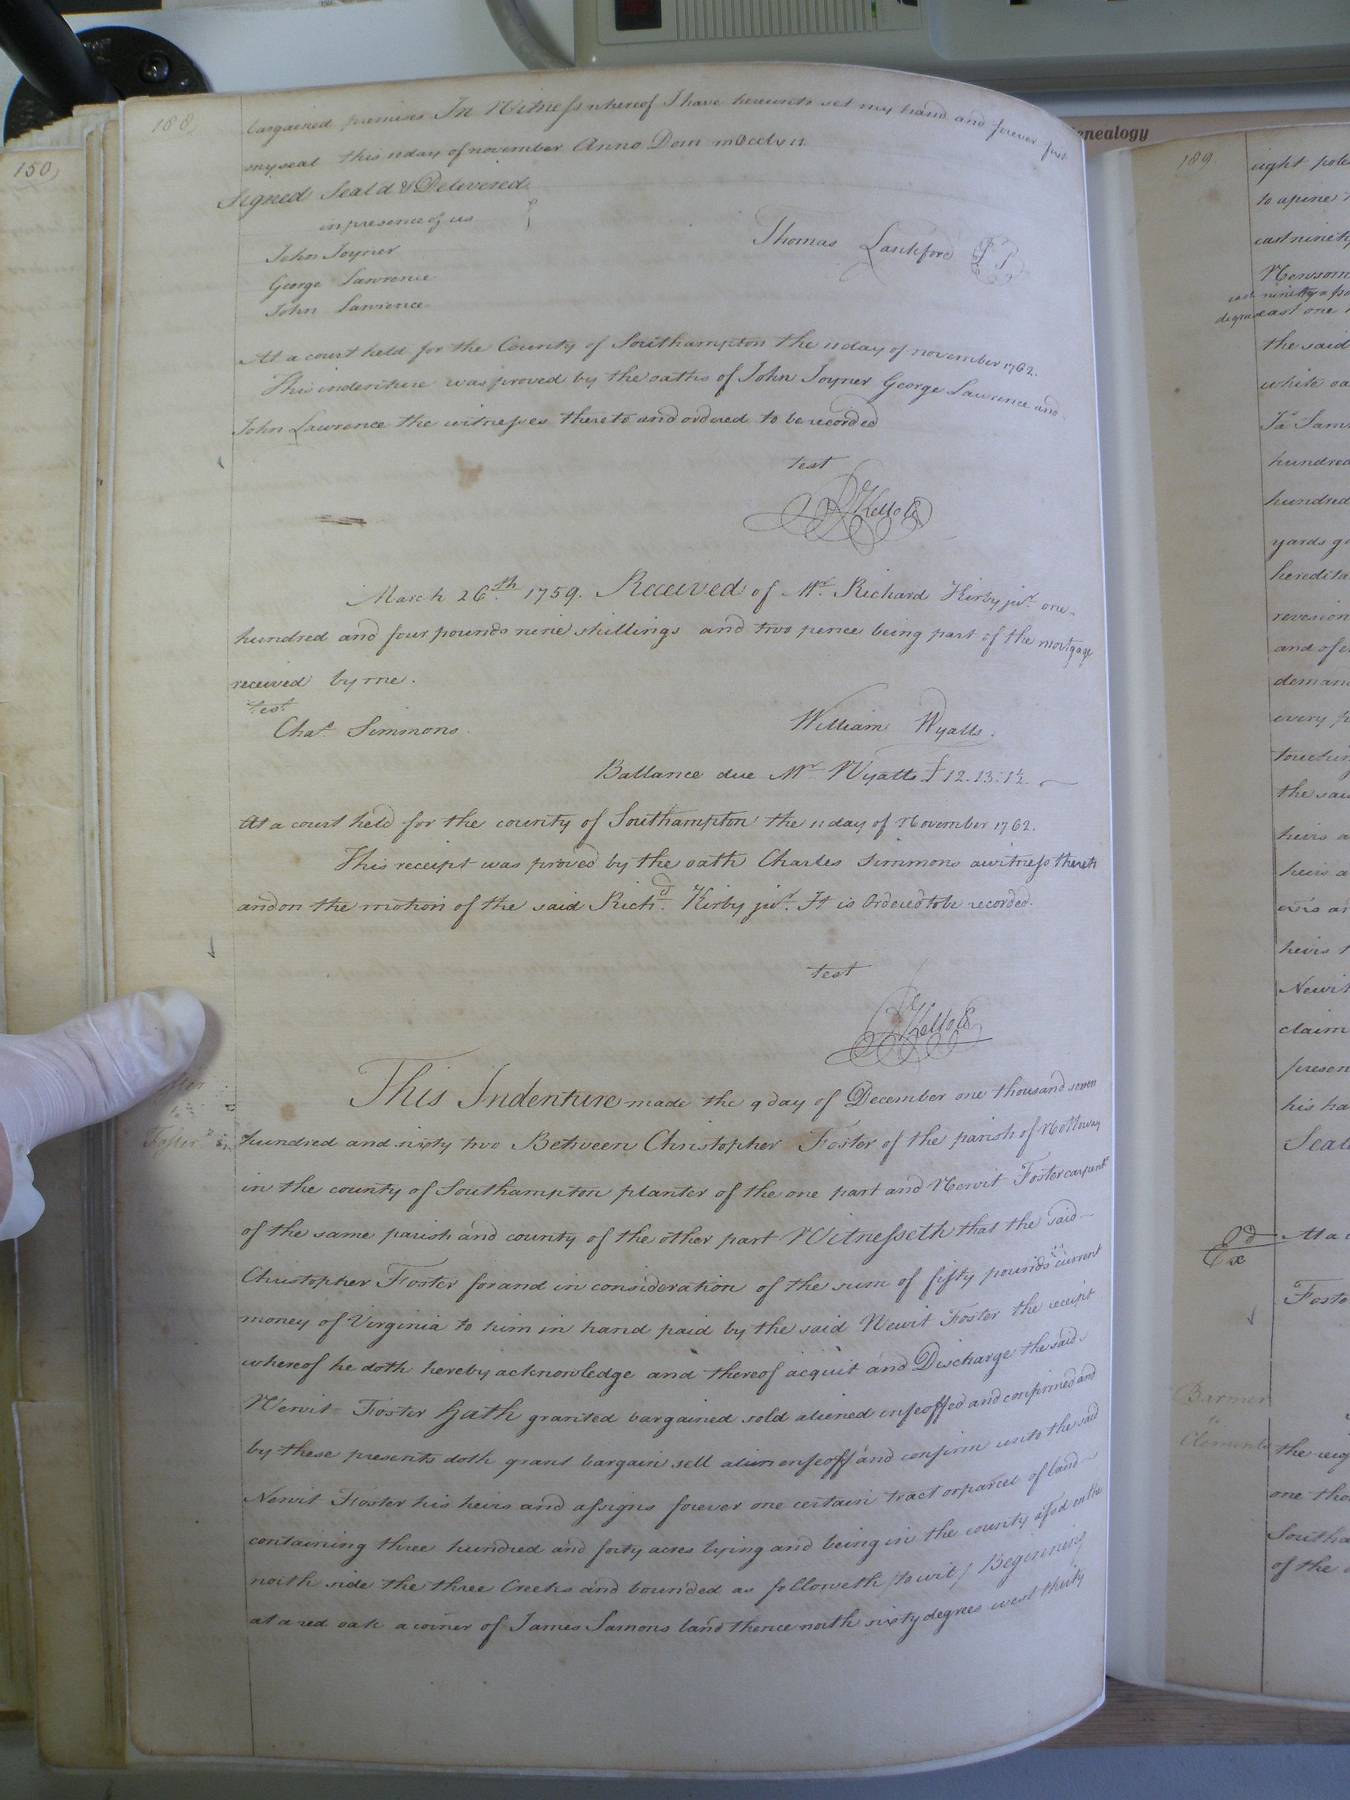 188
bargained premises In Witness whereof I have hereunto set my hand and forever
my seal this 11 day of november Anno Dom
Signed Seal'd & Delivered
in presence of us
John Joyner
George Lawrence
John Lawrence
Thomas Lankford
At a court held for the County of Southampton the 11 day of november 1762.
This indenture was proved by the oaths of John Joyner George Lawrence and
John Lawrence the witnesses thereto and ordered to be recorded
test
March 26th 1759. Received of Mr. Richard Kirby junr. one
hundred and four pounds nine shillings and two pence being part of the mortgage
received by me.
test
Chas. Simmons
William Wyatts.
Ballance due Mr Wyatts £12.13.1½
At a court held for the county of Southampton the 11 day of November 1762.
This receipt was proved by the oath Charles Simmons a witness thereto
and on the motion of the said Richd. Kirby junr. It is Ordered to be recorded.
test
This Indenture made the 9 day of December one thousand seven
Foster
hundred and sixty two Between Christopher Foster of the parish of Nottoway
in the county of Southampton planter of the one part and Newit Foster carpenter
of the same parish and county of the other part Witnesseth that the said
Christopher Foster for and in consideration of the sum of fifty pounds current
money of Virginia to him in hand paid by the said Newit Foster the receipt
whereof he doth hereby acknowledge and thereof acquit and Discharge the said
Newit Foster Hath granted bargained sold aliened infeoffed and confirmed and
by these presents doth grant bargain sell alien enfeoff and confirm unto the said
Newit Foster his heirs and assigns forever one certain tract or parcel of land
containing three hundred and forty acres lying and being in the county afsd on the
north side the three Creeks and bounded as followeth /to wit/ Beginning
at a red oak a corner of James Samons land thence north sixty degrees west thirty
150
enealogy
189
to a pine
the said
hundred
hundred
yards
and of
every
the sai
heirs
heirs
heirs
Newit
claim
his ha
Barmer
to
Clements
one tho
of the